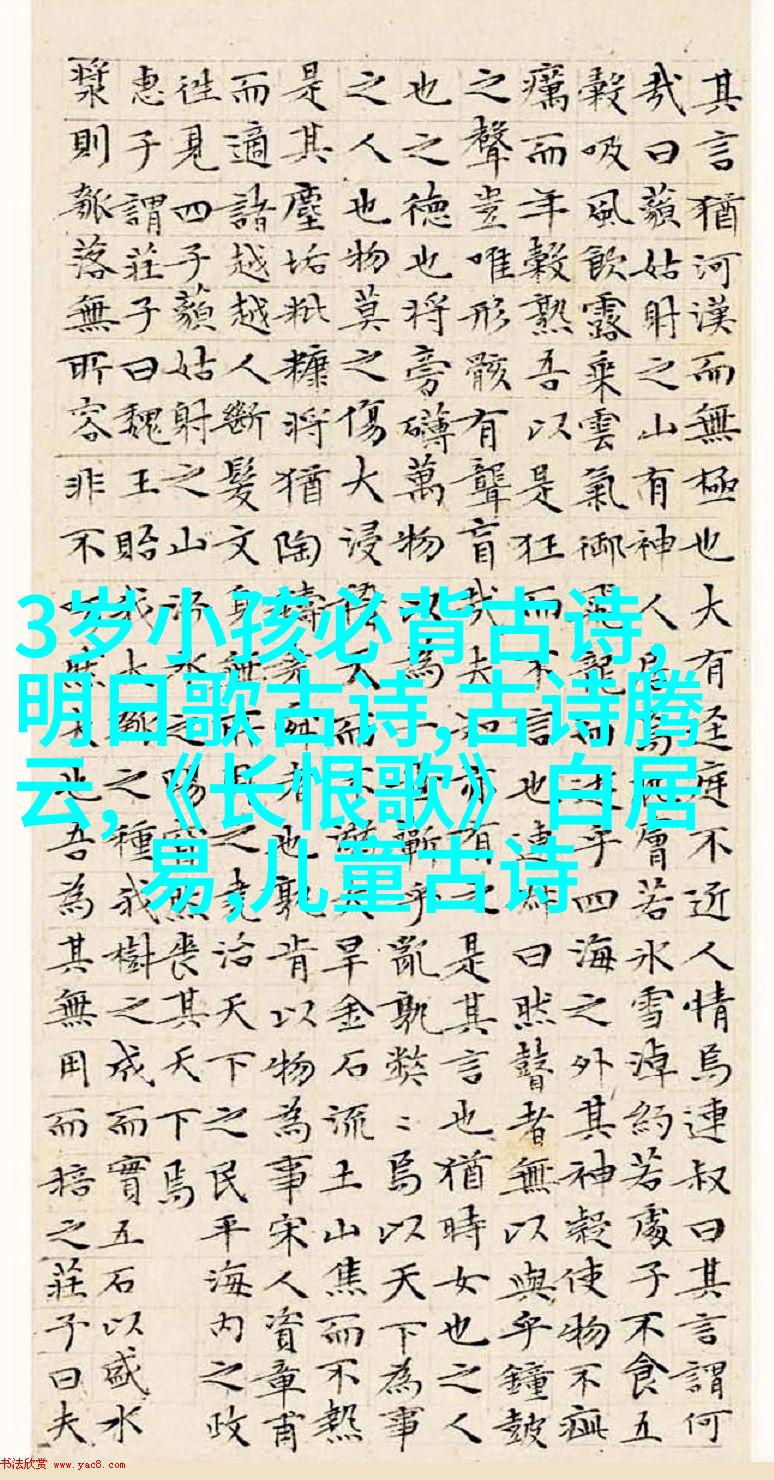 其言猶河漢而無極也大有逕庭不近人情焉連叔曰其言謂何
哉曰藐姑射之山有神人居焉膚若冰雪淖約若處子不食五
穀吸風飲露乘雲氣御飛龍而乎四海之外其神凝使物不疵
癘而年穀熟吾以是狂而不也連叔曰然瞽者無以與乎鐘鼓
之聲豈唯形骸有聾盲哉夫知亦有之是其言也猶時女也之人
也之德也將旁礴萬物以為一蘄乎亂孰弊〻焉以天下為事
之人也物莫之傷大浸稽天而不大旱金石流土山焦而不熱
是其塵垢粃糠將猶陶鑄堯舜者也孰肯以物為事宋人資章甫
而適諸越越人斷髮文身無所之堯治天下之民平海內之政
往見四子藐姑射之山汾水之陽窅然喪其天下焉
惠子謂莊子曰魏王貽我大瓠之種我樹之成而實五石以盛水
漿則瓠落無所容非不然大也吾為其無用而掊之莊子曰夫
3岁小孩必背古诗,
明日歌古诗,古诗腾
云,《长恨歌》白居
易,儿童古诗
书法欣赏 www.yac8.com